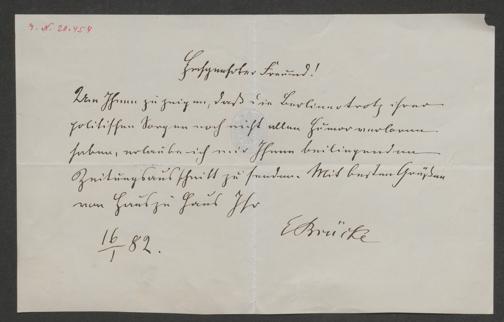 3. N. 20.454
Hochgeehrter Freund!
Um Ihnen zu zeigen, daß die Berliner trotz ihrer
politischen Sorgen noch nicht allen Humor verloren
haben, erlaube ich mir Ihnen beiliegenden
Zeitungsausschnitt zu senden. Mit besten Grüßen
von Haus zu Haus Ihr
E Brücke
16/1 82.